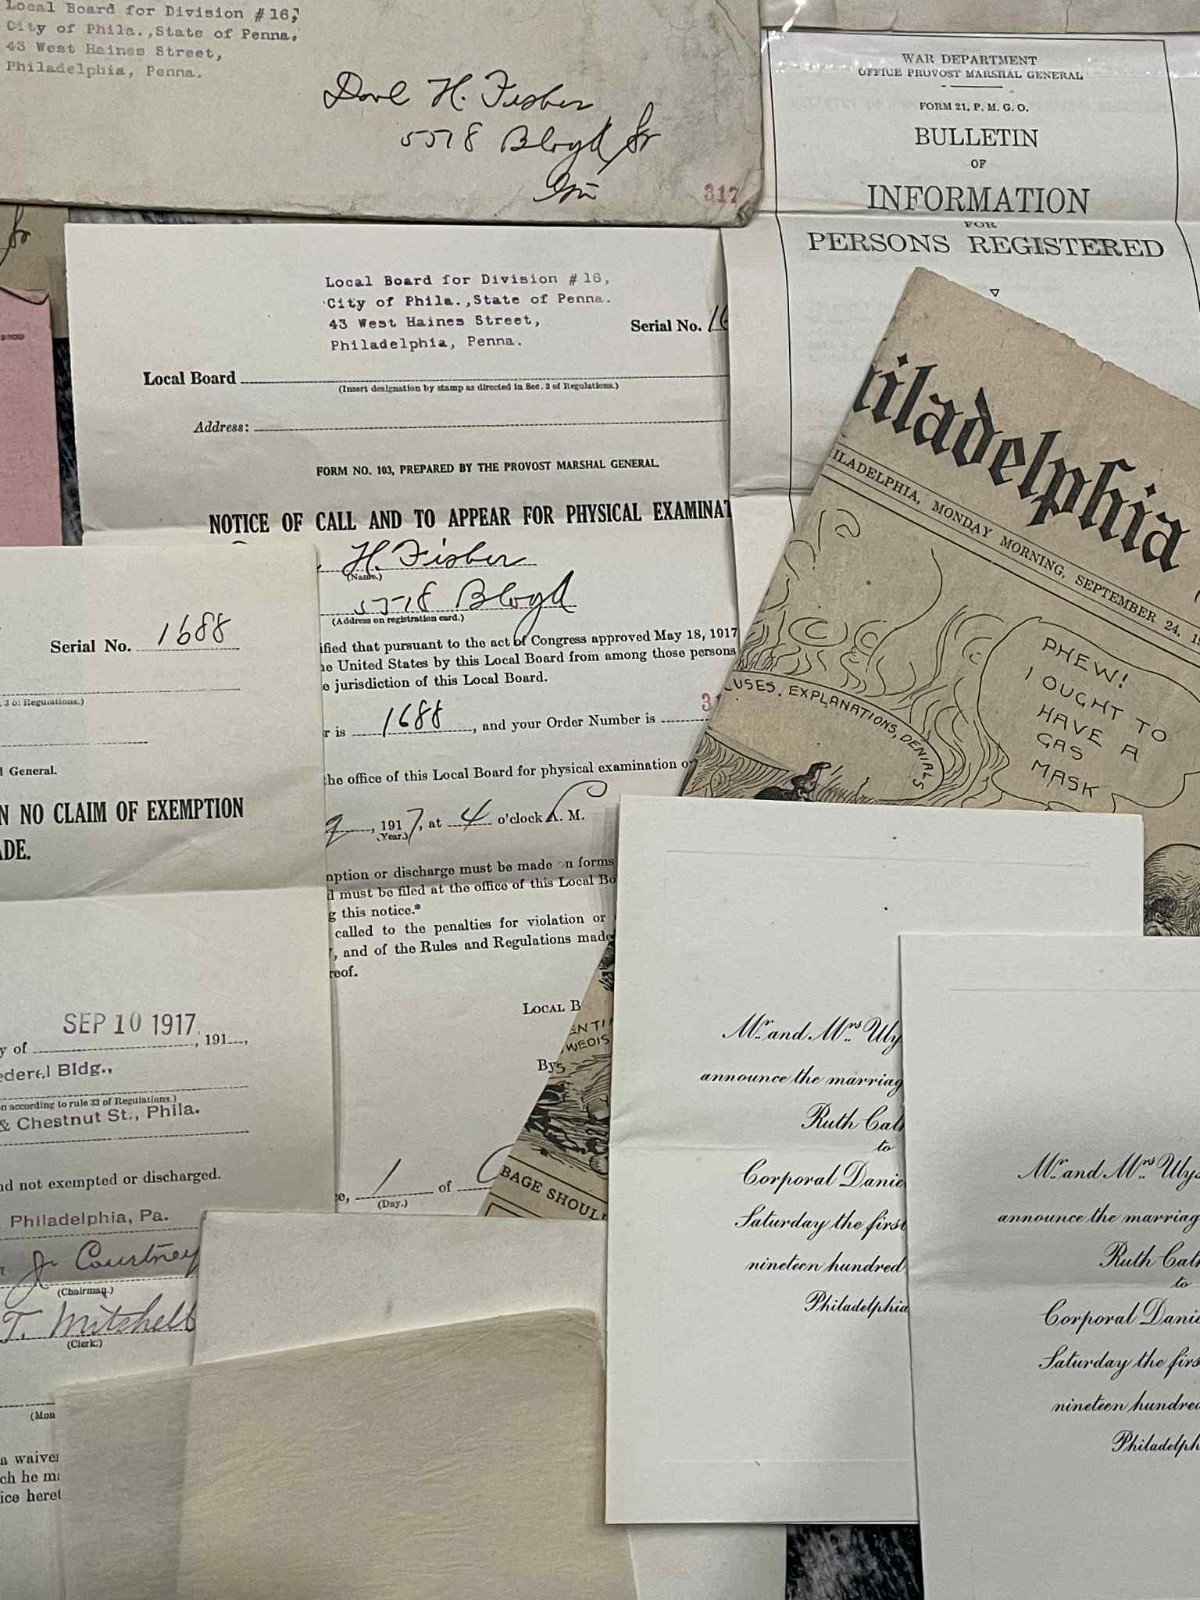 Local Board for Division #16,
City of Phila.,State of Penna.
43 West Haines Street,
Philadelphia, Penna.
H. Fisher
5578
317
WAR DEPARTMENT
OFFICE PROVOST MARSHAL GENERAL
FORM 21, P. M. G. O.
BULLETIN
OF
INFORMATION
FOR
PERSONS REGISTERED
Local Board for Division #16,
City of Phila.,State of Penna.
43 West Haines Street,
Philadelphia, Penna.
Serial No. 16
Local Board
(Insert designation by stamp as directed in Sec. 3 of Regulations.)
Address:
FORM NO. 103, PREPARED BY THE PROVOST MARSHAL GENERAL.
NOTICE OF CALL AND TO APPEAR FOR PHYSICAL EXAMINAT
H. Fisher
(Name.)
(Address on registration card.)
ified that pursuant to the act of Congress approved May 18, 1917
he United States by this Local Board from among those persons
e jurisdiction of this Local Board.
r is 1688, and your Order Number is 31
the office of this Local Board for physical examination o
9, 1917, at 4 o'clock A. M.
(Year.)
mption or discharge must be made on forms
d must be filed at the office of this Local Bo
g this notice.*
called to the penalties for violation or
, and of the Rules and Regulations made
reof.
LOCAL B
By
ce, 1 of
(Day.)
iladelphia
ILADELPHIA, MONDAY MORNING, SEPTEMBER 24, 19
PHEW!
I OUGHT TO
HAVE A
GAS
MASK
USES, EXPLANATIONS, DENIALS
BAGE SHOUL
Serial No. 1688
3 of Regulations.)
l General.
N NO CLAIM OF EXEMPTION
ADE.
SEP 10 1917
y of , 191 ,
ederal Bldg.,
on according to rule 33 of Regulations.)
& Chestnut St., Phila.
nd not exempted or discharged.
Philadelphia, Pa.
J. Courtney
(Chairman.)
T. Mitchell
(Clerk.)
(Mon
a waiver
ch he m
ice heret
Mr. and Mrs. Uly
announce the marriag
Ruth Cat
to
Corporal Danie
Saturday the first
nineteen hundred
Philadelphia
Mr. and Mrs. Ulys
announce the marriag
Ruth Cat
to
Corporal Danie
Saturday the firs
nineteen hundre
Philadelph